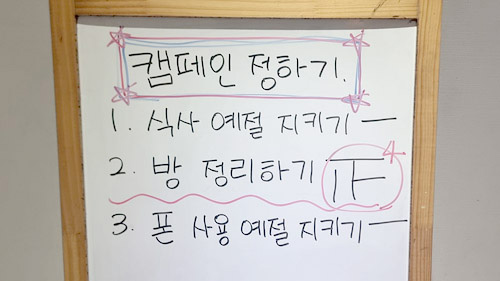 캠페인 정하기.
1. 식사 예절 지키기 一
2. 방 정리하기 𝍵 4
3. 폰 사용 예절 지키기 一